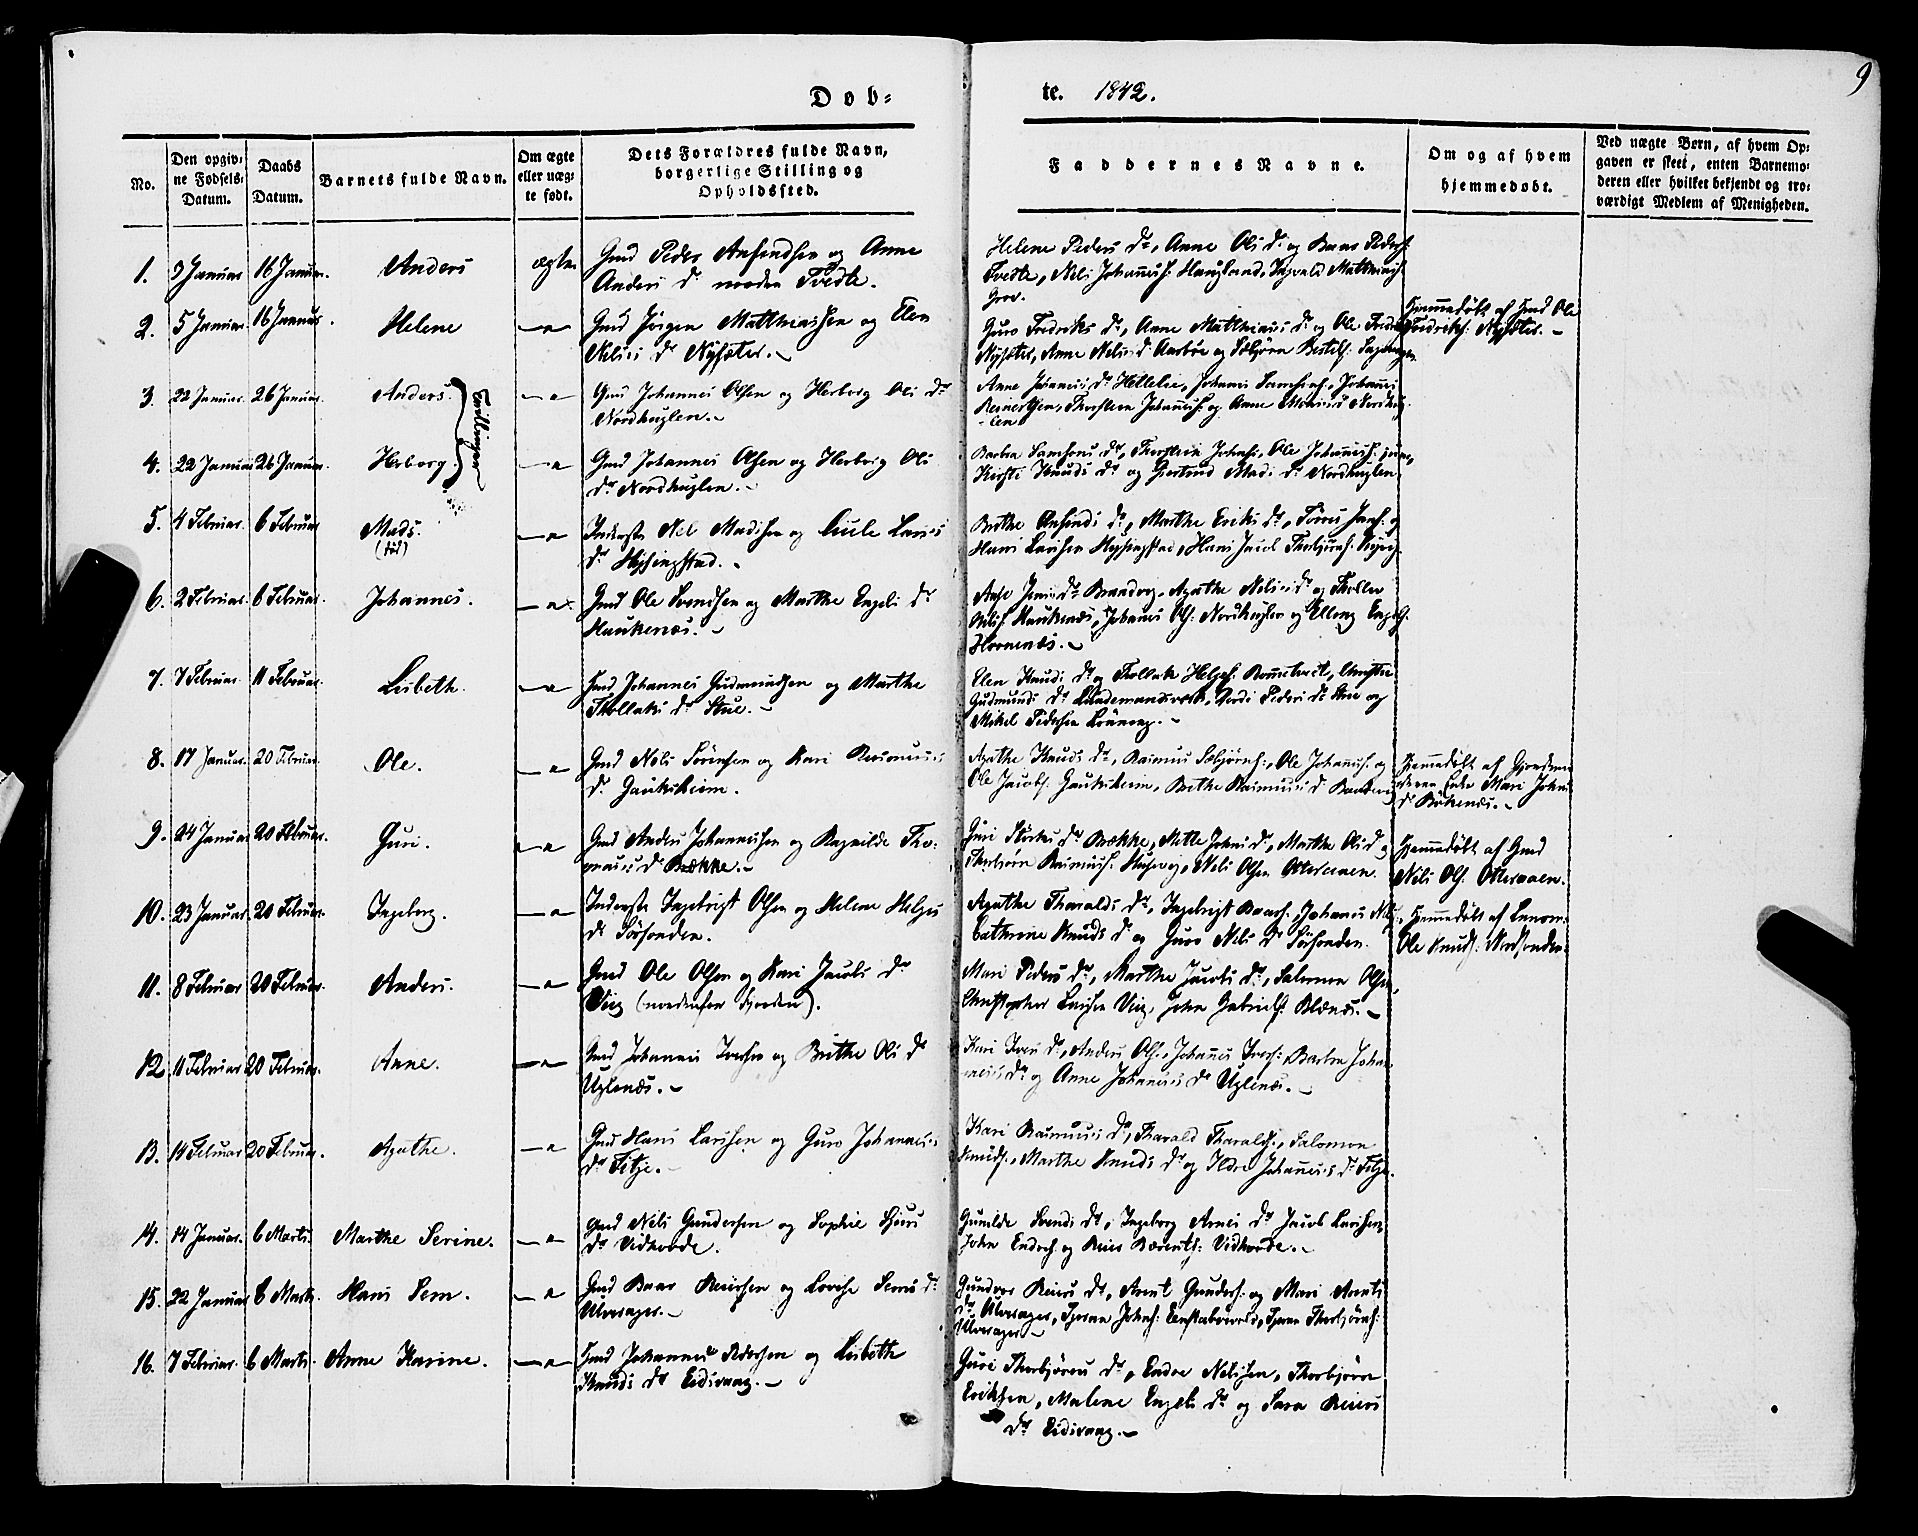 9
Døb-
te. 1842.
No.
Den opgiv-
ne Fødsels-
Datum.
Daabs
Datum.
Barnets fulde Navn.
Om ægte
eller uæg-
te født.
Dets Forældres fulde Navn,
borgerlige Stilling og
Opholdssted.
Faddernes Navne.
Om og af hvem
hjemmedøbt.
Ved uægte Børn, af hvem Op-
gaven er skeet, enten Barnemo-
deren eller hvilket bekjendt og tro-
værdigt Medlem af Menigheden.
1. Januar 16 Januar. Anders ægte Gmd Peder Amfindsen og Anne
Anders Dr Tvedte.
Helene Peders Dr, Anne Ols Dr og Baar Peders.
Tvedte, Nels Johanness: Haugland, Ingvald Matthias:
Grov.
2. 5 Januar 16 Januar. Helene —"— Gmd Jørgen Matthiassen og Elen
Nelses Dr Nysæter.—
Guro Fredriks Dr, Anne Matthiases Dr og Ole Fredr:
Nysæter, Anne Nelses Dr Aarbøe og Sæbjørn Bertels:
Hjemmedøbt af Gmd Ole
Fredriks: Nysæter.—
3. 22 Januar. 26 Januar. Anders. —"— Gmd Johannes Olsen og Herborg Ols Dr
Nordhuglen.—
Tvillinger
Anne Johanneses Dr Hellelie, Johannes Samsons:, Johannes
Reinertsen, Thorstein Johanness: og Anne Nordhug-
-len
4. 22 Januar 26 Januar. Herborg. —"— Gmd Johannes Olsen og Herborg Ols
Dr Nordhuglen.—
Barbra Samsons Dr, Thorstein Johans:, Ole Johanness: junr,
Kirsti Knuds Dr og Giertrud Mads Dr Nordhuglen.
5. 4 Februar. 6 Februar Mads.
(død)
—"— Inderste Nels Madsen og Lars's
Dr Hysingstad.—
Brithe Amfinds Dr, Marthe Eriks Dr, Jans: og
Hans Larsen Hysingstad, Hans Jacob Thorbjørns:
6. 2 Februar. 6 Februar. Johannes. —"— Gmd Ole Svendsen og Marthe Engels Dr
Haukenæs.—
Anje Jens's Dr Brandvig, Agathe Nels's Dr og
Nels: Haukenæs, Johannes Ols: Nordhuglen og Elling Engels:
Hornenæs.—
7. 7 Februar 11 Februar. Lisbeth. —"— Gmd Johannes Gudmundsen og Marthe
Tollaks Dr Stue.—
Elen Knuds Dr og Tollak Helges: Rometveit, Christie
Gudmunds Dr Lundemansverk, Peders Dr Stue og
Mikel Pedersen Lønning.—
8. 17 Januar. 20 Februar. Ole. —"— Gmd Nels Sørensen og Kari Rasmus's
Dr Gauksheim.
Agathe Knuds Dr, Rasmus Sæbjørns:, Ole Johanness: og
Ole Jacobs: Gauksheim, Brithe Rasmus's Dr
Hjemmedøbt af Gjordemo-
deren Enke Mari Johns
Dr Bøkenæs.—
9. 24 Januar 20 Februar. Guri. —"— Gmd Anders Johannessen og Ragnilde Tho-
mas's Dr Bække.—
Guri Størks Dr Bække, Mette Johns Dr, Marthe Ols Dr og
Thorbiørn Rasmuss: Husevig, Nels Olsen Otteraaen.
Hjemmedøbt af Gmd
Nels Ols: Otteraaen.
10. 23 Januar. 20 Februar. Ingeborg. —"— Inderste Ingebrigt Olsen og Helene Helges
Dr Sørfonden.
Agathe Tharalds Dr, Ingebrigt Baars:, Johannes Nels:,
Cathrine Knuds Dr og Guro Nels Dr Sørfonden.
Hjemmedøbt af
Ole Knuds: Nordfonden.
11. 8 Februar 20 Februar. Anders. —"— Gmd Ole Olsen og Kari Jacobs Dr
Viig (nordenfor Fjorden).
Mari Peders Dr, Marthe Jacobs Dr, Salomon Olsen,
Christopher Larsen Viig, John Gabriels: Blænæs.—
12. 11 Februar 20 Februar. Anne. —"— Gmd Johannes Iversen og Brithe Ols Dr
Uglenæs.—
Kari Ivers Dr, Anders Ols:, Johannes Ivers:, Barbra Johan-
neses Dr og Anne Johanneses Dr Uglenæs.—
13. 14 Februar 20 Februar. Agathe. —"— Gmd Hans Larssen og Guro Johanneses
Dr Fitje.—
Kari Rasmus's Dr, Tharald Tharalds:, Salomon
Knuds:, Marthe Knuds Dr og Ildri Johanneses Dr Fitje.
14. 14 Januar. 6 Marts. Marthe Serine. —"— Gmd Nels Gundersen og Sophie Sjurs
Dr Vidhovde.
Gunilde Svends Dr, Ingeborg Arnes Dr Jacob Larssen,
John Endres: og Reier Bærents: Vidhovde.—
15. 22 Januar 6 Marts. Hans Sem. —"— Gmd Baar Reiersen og Lovise Sems Dr
Alversager.—
Gundvor Reiers Dr, Arent Gunders: og Mari Arents
Dr Alversager, Johns:, Thorbjørns:
Alversager—
16. 7 Februar. 6 Marts. Anne Karine. —"— Gmd Johannes Pedersen og Lisbeth
Knuds Dr Eidsvaag.—
Guri Thorbjørns Dr, Endre Nelssen, Thorbjørn
Eriksen, Malene Engels Dr og Sara Reiers
Dr Eidsvaag.—